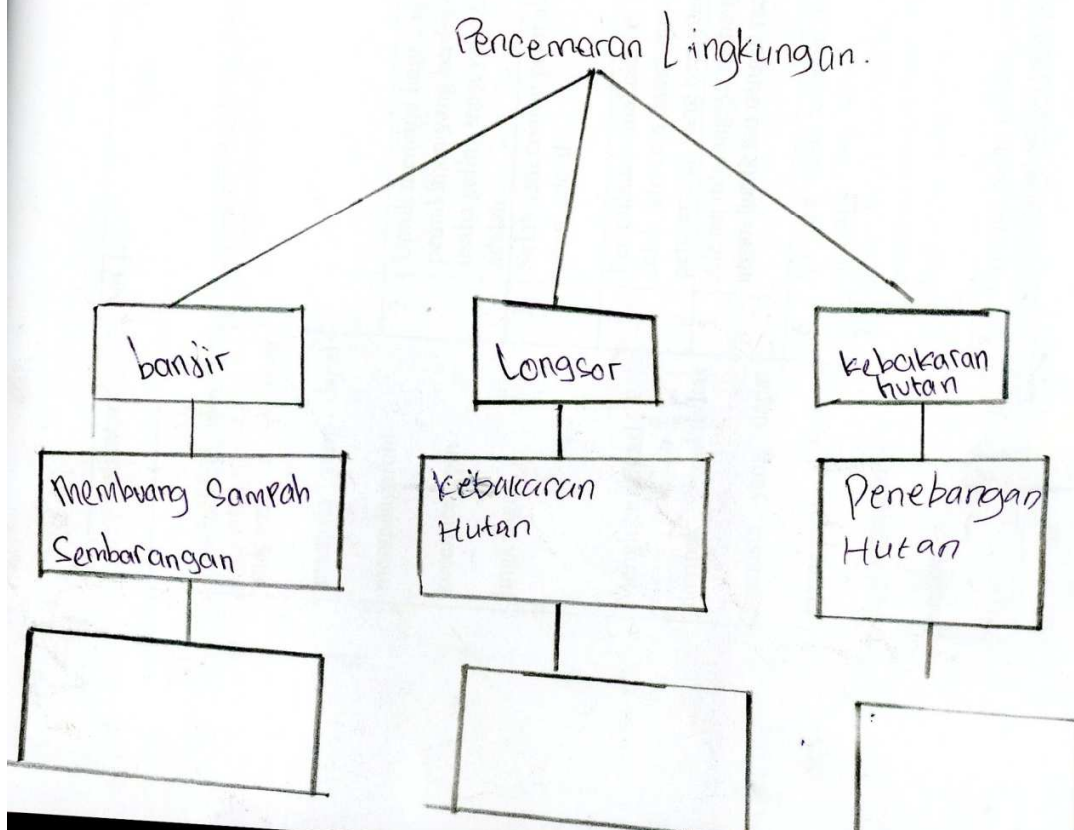 Pencemaran Lingkungan.
banjir
Longsor
kebakaran
hutan
Membuang Sampah
Sembarangan
Kebakaran
Hutan
Penebangan
Hutan